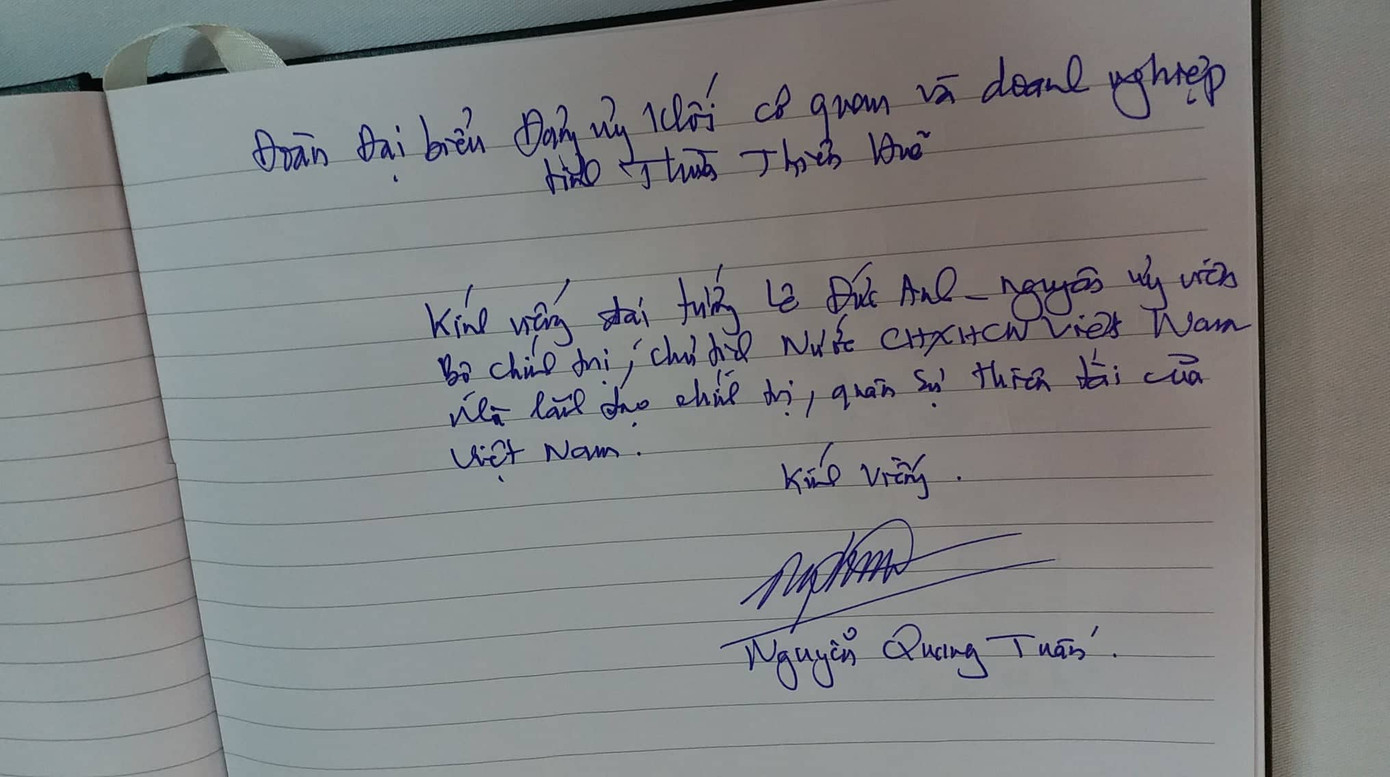 Đoàn Đại biểu Đảng ủy Khối cơ quan và doanh nghiệp
tỉnh Thừa Thiên Huế
Kính viếng đại tướng Lê Đức Anh - nguyên ủy viên
Bộ chính trị, chủ tịch Nước CHXHCN Việt Nam
Nhà lãnh đạo chính trị, quân sự thiên tài của
Việt Nam.
Kính Viếng.
Nguyễn Quang Tuấn.